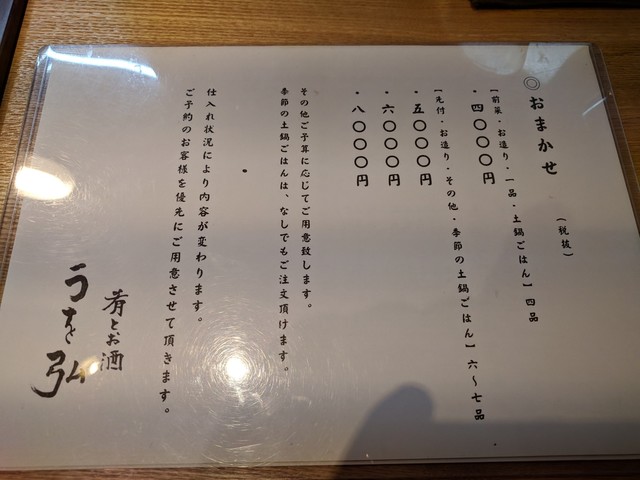 ◎おまかせ （税抜）
【前菜・お造り・一品・土鍋ごはん】四品
・四〇〇〇円
【先付・お造り・その他・季節の土鍋ごはん】六～七品
・五〇〇〇円
・六〇〇〇円
・八〇〇〇円
その他ご予算に応じてご用意致します。
季節の土鍋ごはんは、なしでもご注文頂けます。
仕入れ状況により内容が変わります。
ご予約のお客様を優先にご用意させて頂きます。
肴とお酒
うを弘